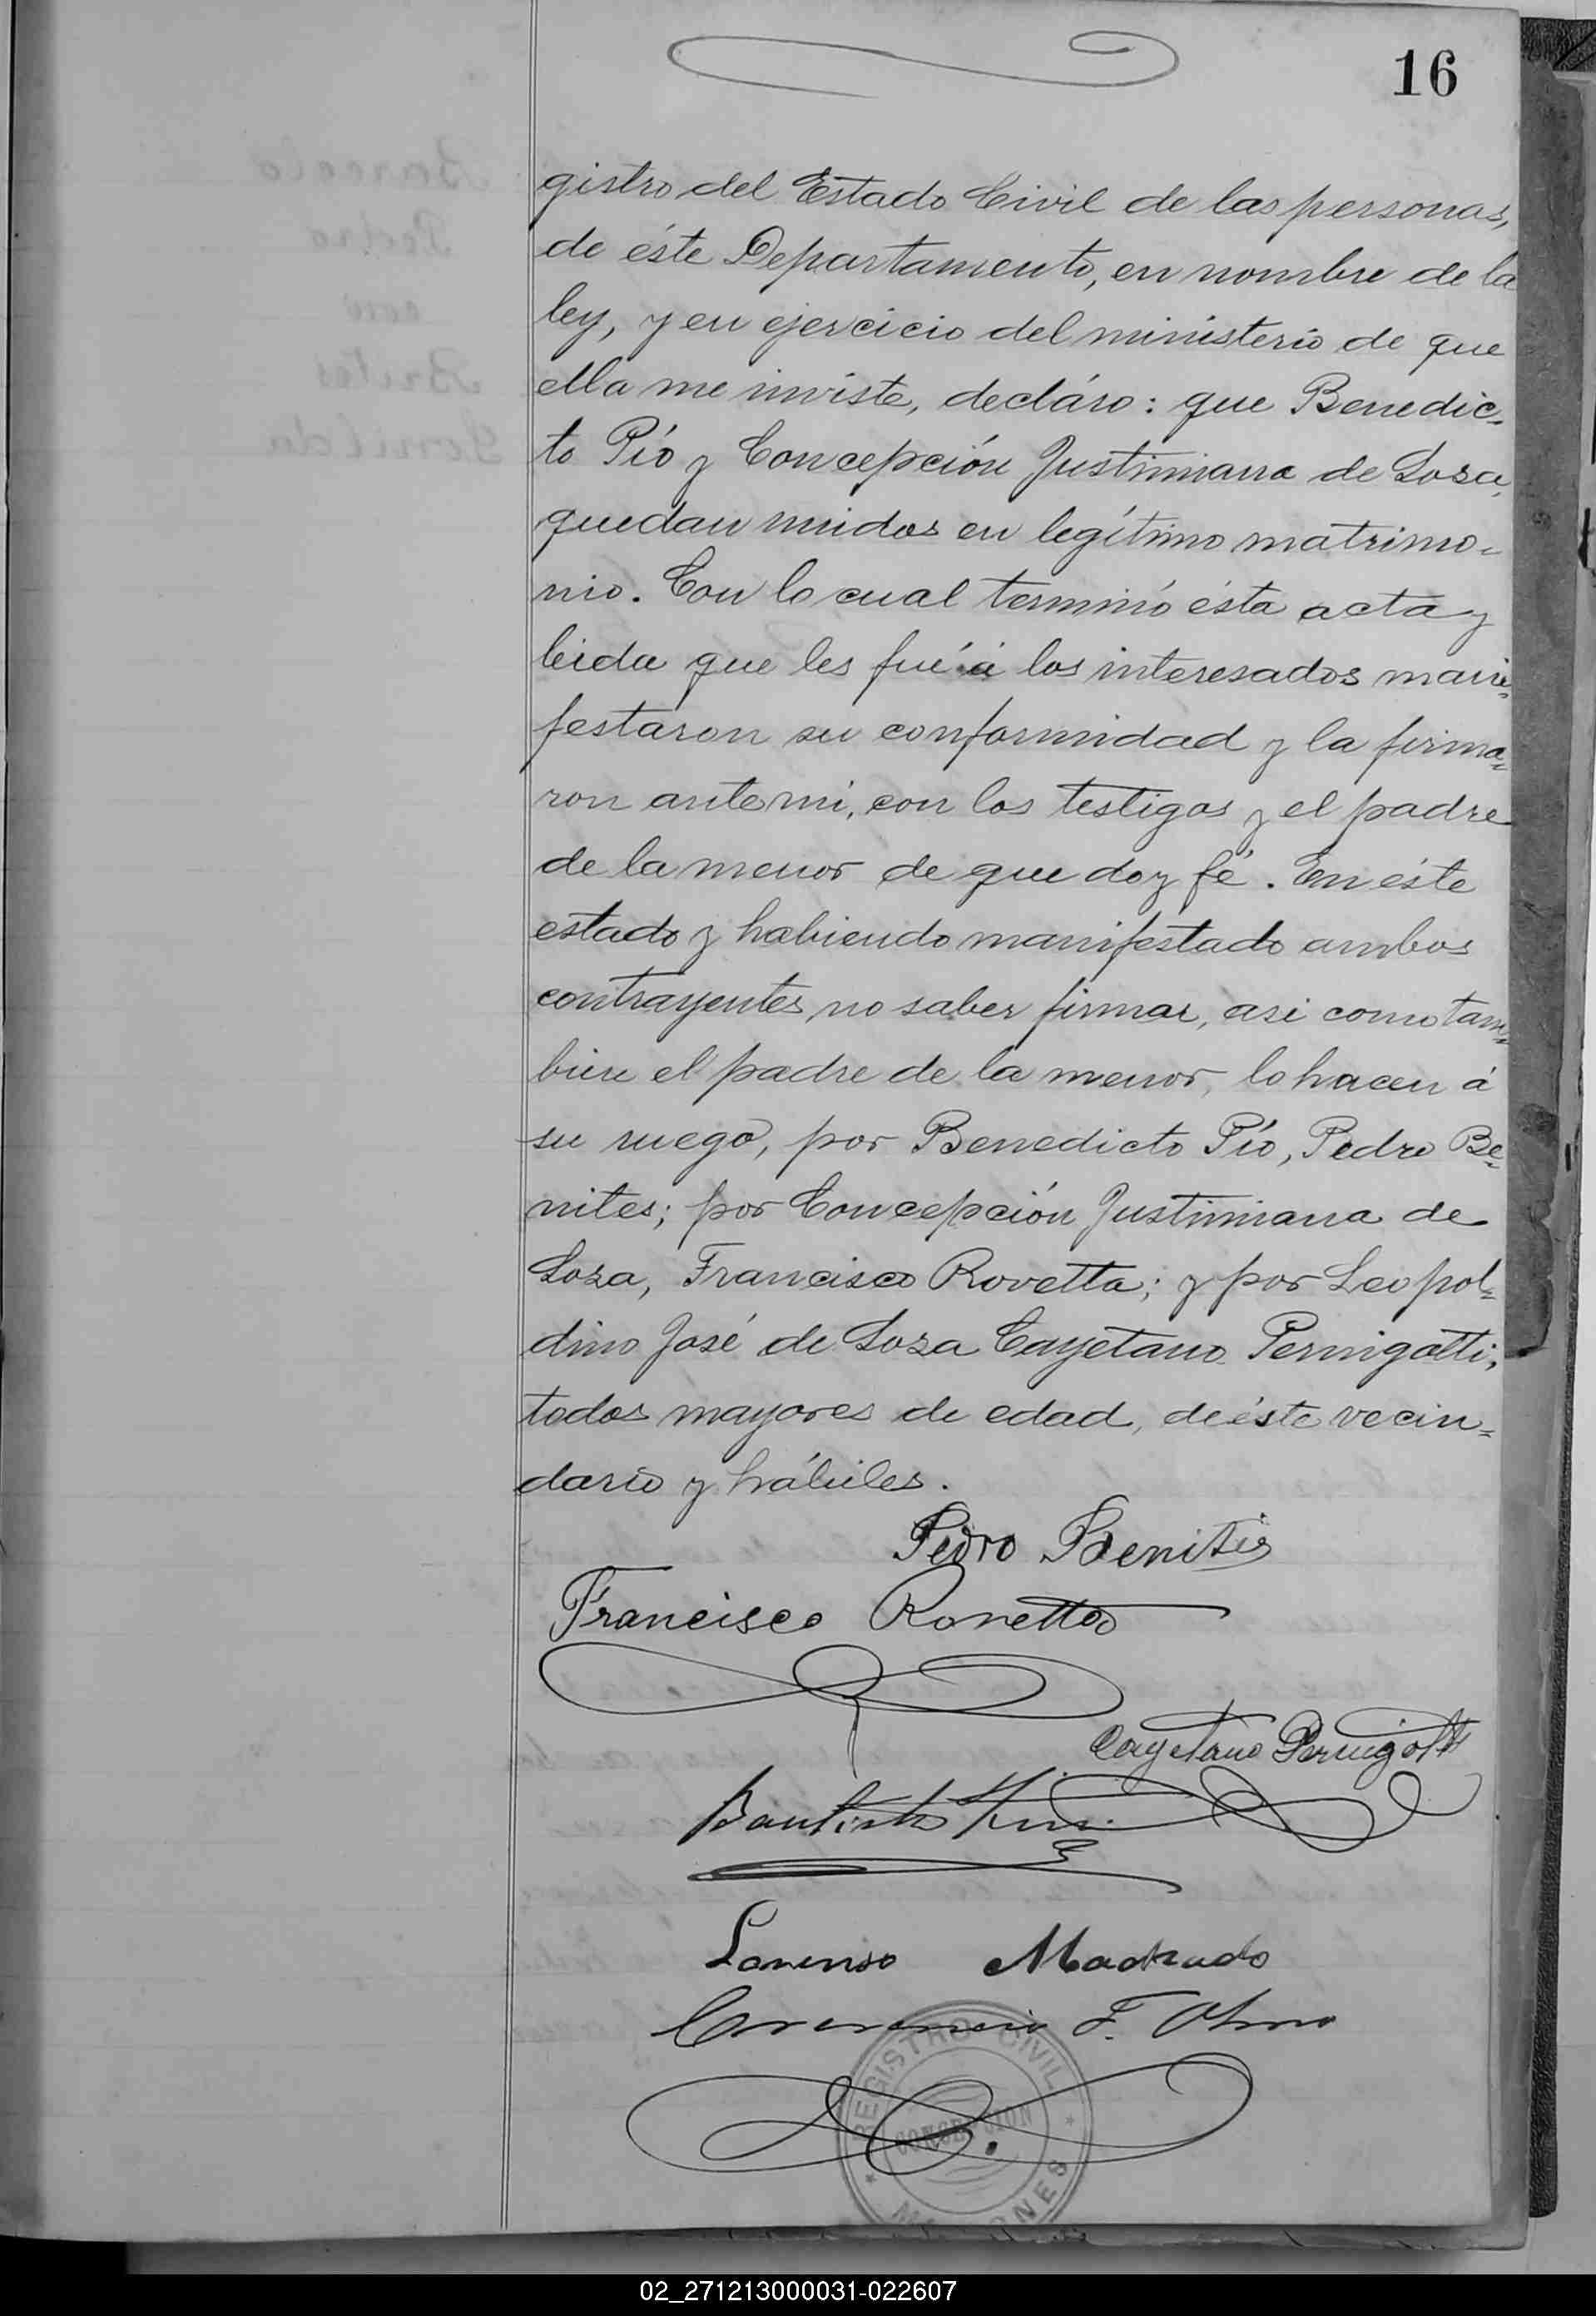 16
gistro del Estado Civil de las personas,
de éste Departamento, en nombre de la
ley, y en ejercicio del ministerio de que
ella me inviste, decláro: que Benedic-
to Pío y Concepción Justiniana de Loza,
quedan unidos en legítimo matrimo-
nio. Con lo cual terminó ésta acta y
leida que les fué á los interesados mani-
festaron su conformidad y la firma-
ron ante mi, con los testigos y el padre
de la menor de que doy fé. En éste
estado y habiendo manifestado ambos
contrayentes no saber firmar, asi como tam-
bien el padre de la menor, lo hacen á
su ruego, por Benedicto Pío, Pedro Be-
nites; por Concepción Justiniana de
Loza, Francisco Rovetta; y por Leopol-
dino José de Loza Cayetano Pernigotti,
todos mayores de edad, de éste vecin-
dario y hábiles.
Pedro Benites
Francisco Rovetta
Cayetano Pernigotti
Bautista
Lorenso Machado
F.
REGISTRO CIVIL
CONCEPCION
MISIONES
02_271213000031-022607